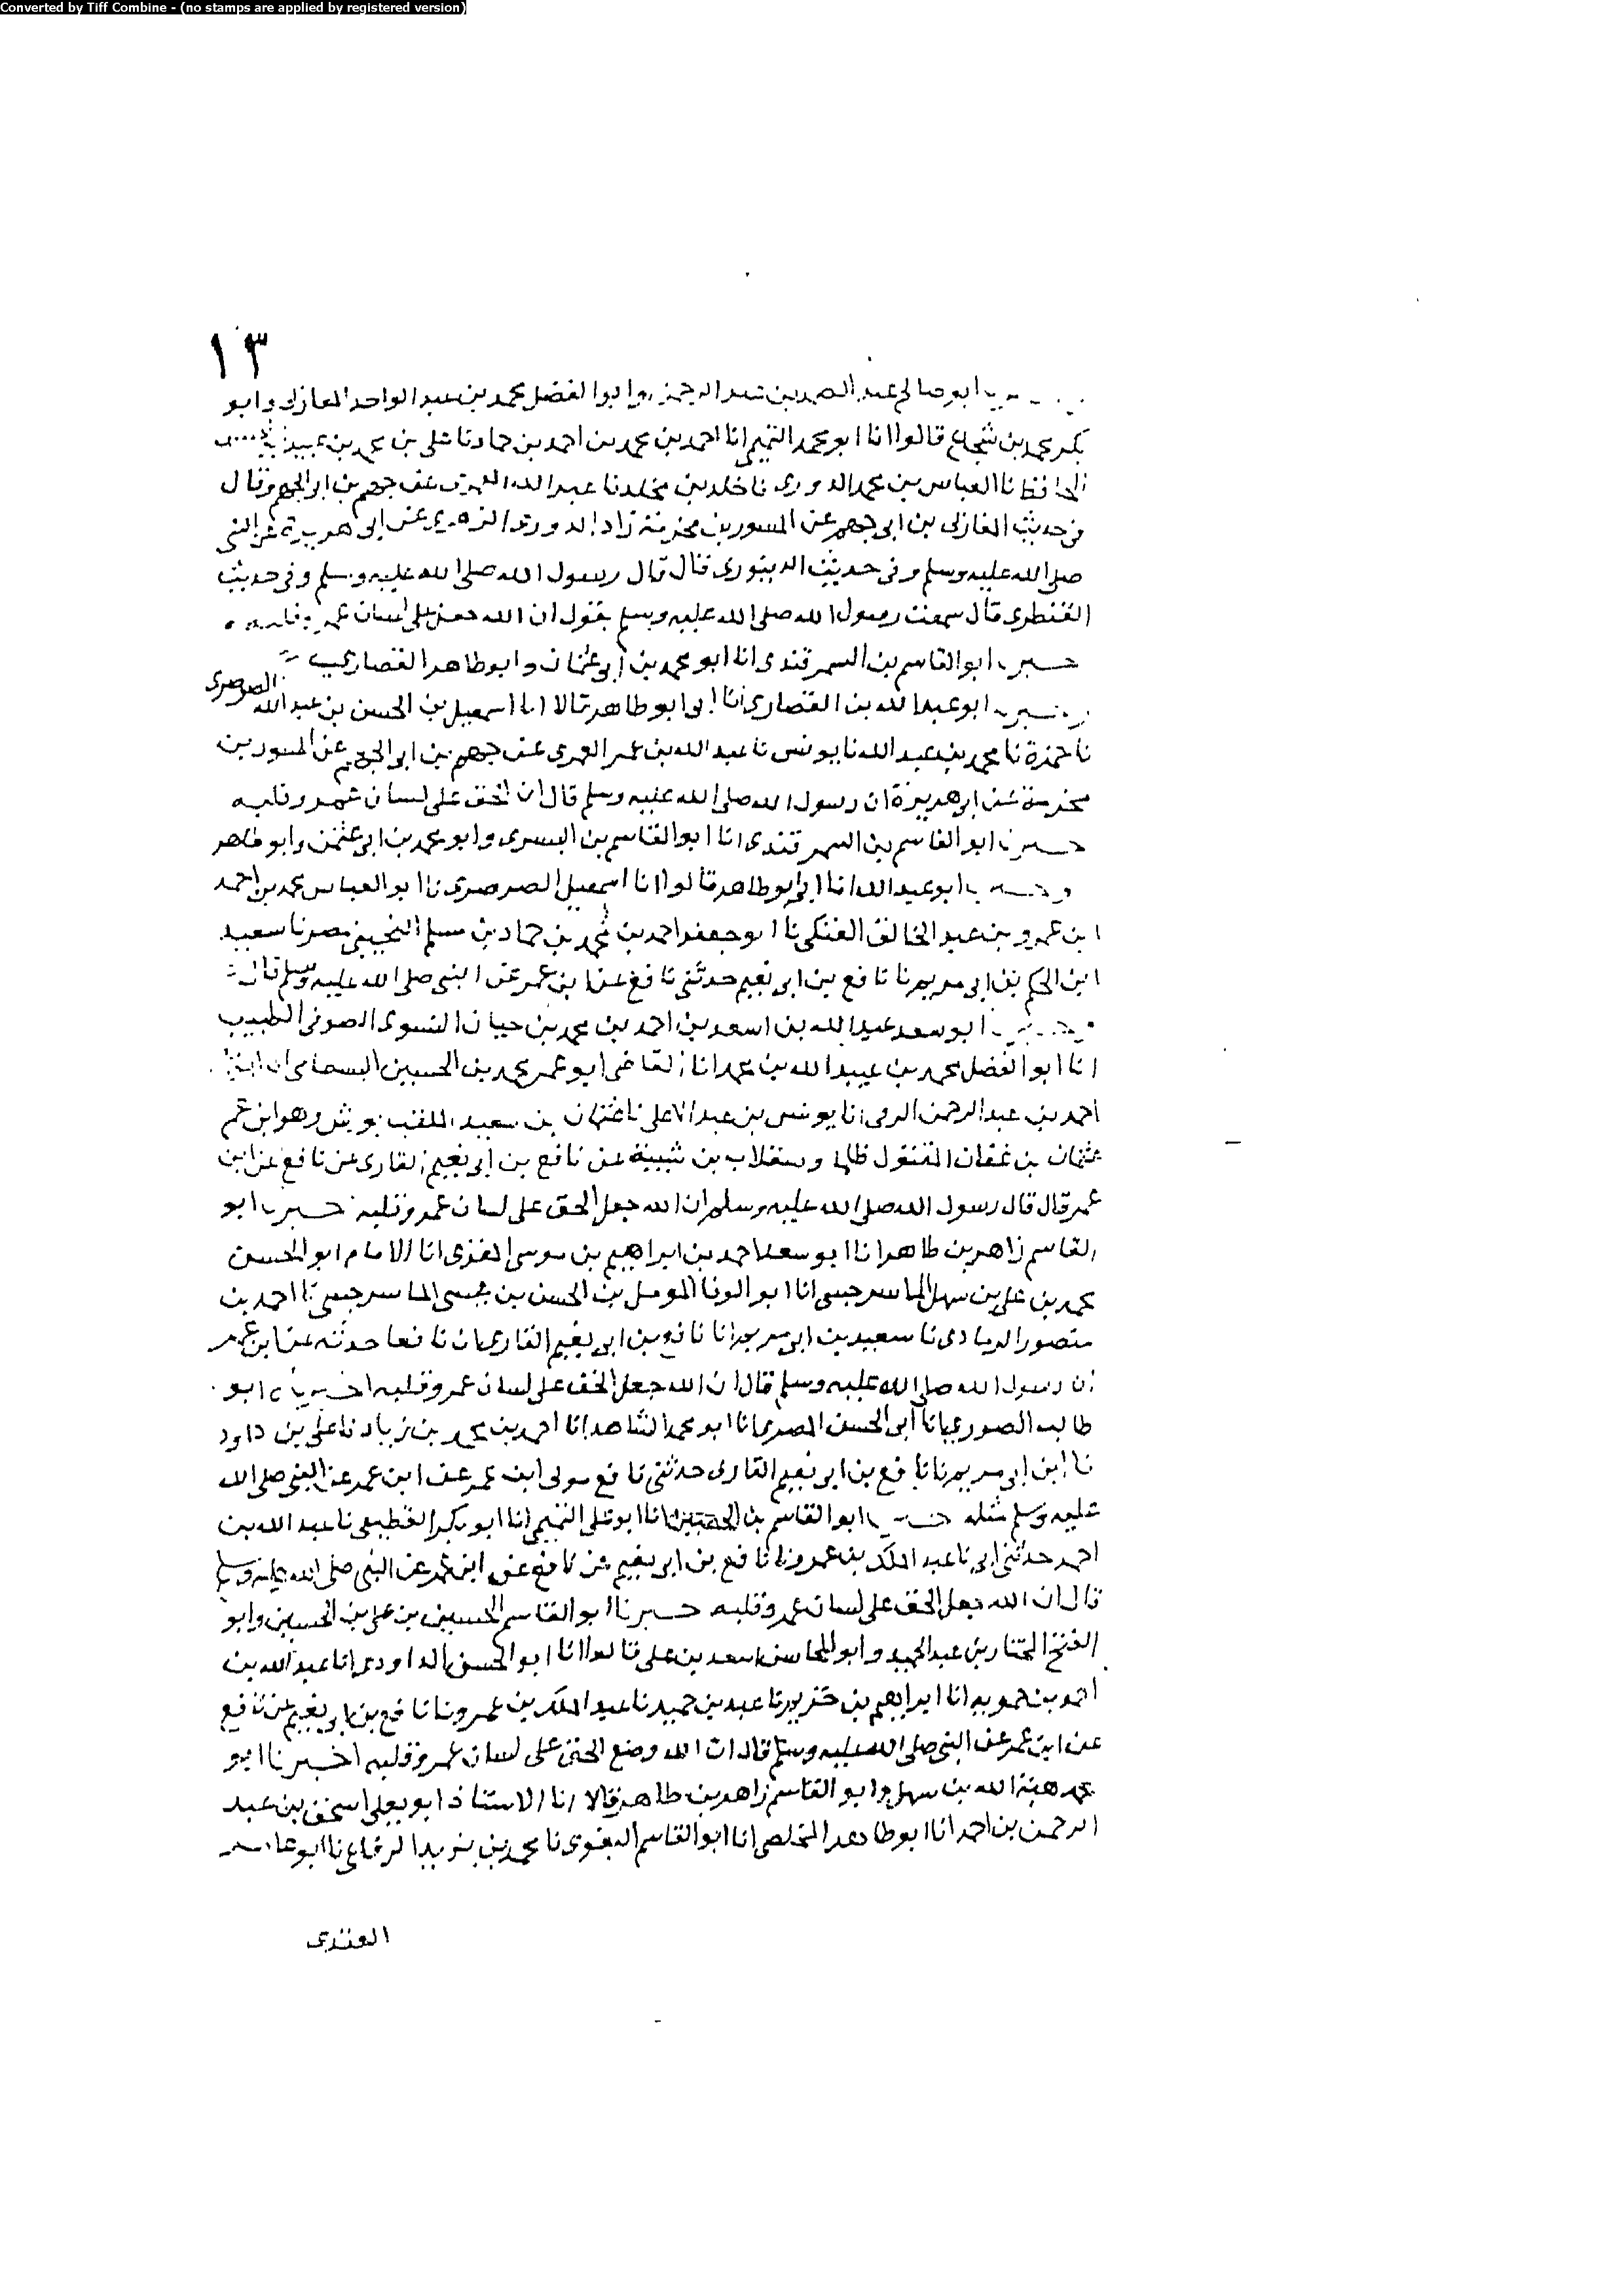 Converted by Tiff Combine - (no stamps are applied by registered version)
١٣
ابو صالح عبد الصمد بن عبد الرحمن وابو الفضل محمد بن عبد الواحد المغازلى وابو
بكر محمد بن شجاع قالوا انا ابو محمد التميمى انا احمد بن محمد بن احمد بن حماد نا على بن محمد بن عبيد
الحافظ نا العباس بن محمد الدورى نا خلد بن مخلد نا عبد الله العمرى عن جهم بن ابى الجهم وقال
فى حديث المغازلى بن ابى جهم عن المسور بن مخرمة زاد الدورى الزهرى عن ابى هريرة عن النبى
صلى الله عليه وسلم وفى حديث الدينورى قال قال رسول الله صلى الله عليه وسلم وفى حديث
القنطرى قال سمعت رسول الله صلى الله عليه وسلم يقول ان الله جعل على لسان عمر وقلبه
ابو القاسم بن السمرقندى انا ابو محمد بن ابى عثمان وابو طاهر القصارى
ابو عبد الله بن القصارى انا ابى ابو طاهر قالا انا اسمعيل بن الحسن بن عبد الله الصرصرى
نا حمزة نا محمد بن عبد الله نا يونس نا عبد الله بن عمر العمرى عن جهم بن ابى الجهم عن المسور بن
مخرمة عن ابى هريرة ان رسول الله صلى الله عليه وسلم قال ان الحق على لسان عمر وقلبه
ابو القاسم بن السمرقندى انا ابو القاسم بن البسرى وابو محمد بن ابى عثمن وابو طاهر
ابو عبد الله انا ابى ابو طاهر قالوا انا اسمعيل الصرصرى نا ابو العباس محمد بن احمد
ابن عمرو بن عبد الخالق العتكى نا ابو جعفر احمد بن محمد بن حماد بن مسلم التجيبى بمصر نا سعيد
ابن الحكم بن ابى مريم نا نافع بن ابى نعيم حدثنى نافع عن ابن عمر عن النبى صلى الله عليه وسلم قال
ابو سعد عبد الله بن اسعد بن احمد بن محمد بن حيان النسوى الصوفى الطبيب
انا ابو الفضل محمد بن عبيد الله بن محمد انا القاضى ابو عمر محمد بن الحسين البسطامى انا
احمد بن عبد الرحمن الرقى انا يونس بن عبد الاعلى نا عثمان بن سعيد الملقب بورش وهو ابن عم
عثمان بن عفان المقتول ظلما وسقلاب بن شيبة عن نافع بن ابى نعيم القارى عن نافع عن ابن
عمر قال قال رسول الله صلى الله عليه وسلم ان الله جعل الحق على لسان عمر وقلبه ابو
القاسم زاهر بن طاهر انا ابو سعد احمد بن ابراهيم بن موسى المقرى انا الامام ابو الحسن
محمد بن على بن سهل الماسرجسى انا ابو الوفا المومل بن الحسن بن عيسى الماسرجسى نا احمد بن
منصور الرمادى نا سعيد بن ابى مريم انا نافع بن ابى نعيم القارى ان نافعا حدثه عن ابن عمر
ان رسول الله صلى الله عليه وسلم قال ان الله جعل الحق على لسان عمر وقلبه ابو
طالب الصورى انا ابى الحسن المصرى انا ابو محمد الشاهد انا احمد بن محمد بن زياد نا على بن داود
نا ابن ابى مريم نا نافع بن ابى نعيم القارى حدثنى نافع مولى ابن عمر عن ابن عمر عن النبى صلى الله
عليه وسلم مثله ابو القاسم بن الحصين انا ابو على التميمى انا ابو بكر القطيعى نا عبد الله بن
احمد حدثنى ابى نا عبد الملك بن عمرو نا نافع بن ابى نعيم عن نافع عن ابن عمر عن النبى صلى الله عليه وسلم
قال ان الله جعل الحق على لسان عمر وقلبه اخبرنا ابو القاسم الحسين بن على بن الحسين وابو
الفتح المختار بن عبد الحميد وابو المحاسن اسعد بن على قالوا انا ابو الحسن الداودى انا عبد الله بن
احمد بن حمويه انا ابراهيم بن خزيم نا عبد بن حميد نا عبد الملك بن عمرو نا نافع بن ابى نعيم عن نافع
عن ابن عمر عن النبى صلى الله عليه وسلم قال ان الله وضع الحق على لسان عمر وقلبه اخبرنا ابو
محمد هبة الله بن سهل وابو القاسم زاهر بن طاهر قالا انا الاستاذ ابو يعلى اسحق بن عبد
الرحمن بن احمد انا ابو طاهر المخلص انا ابو القاسم البغوى نا محمد بن يزيد الرفاعى نا ابو عامر
العقدى